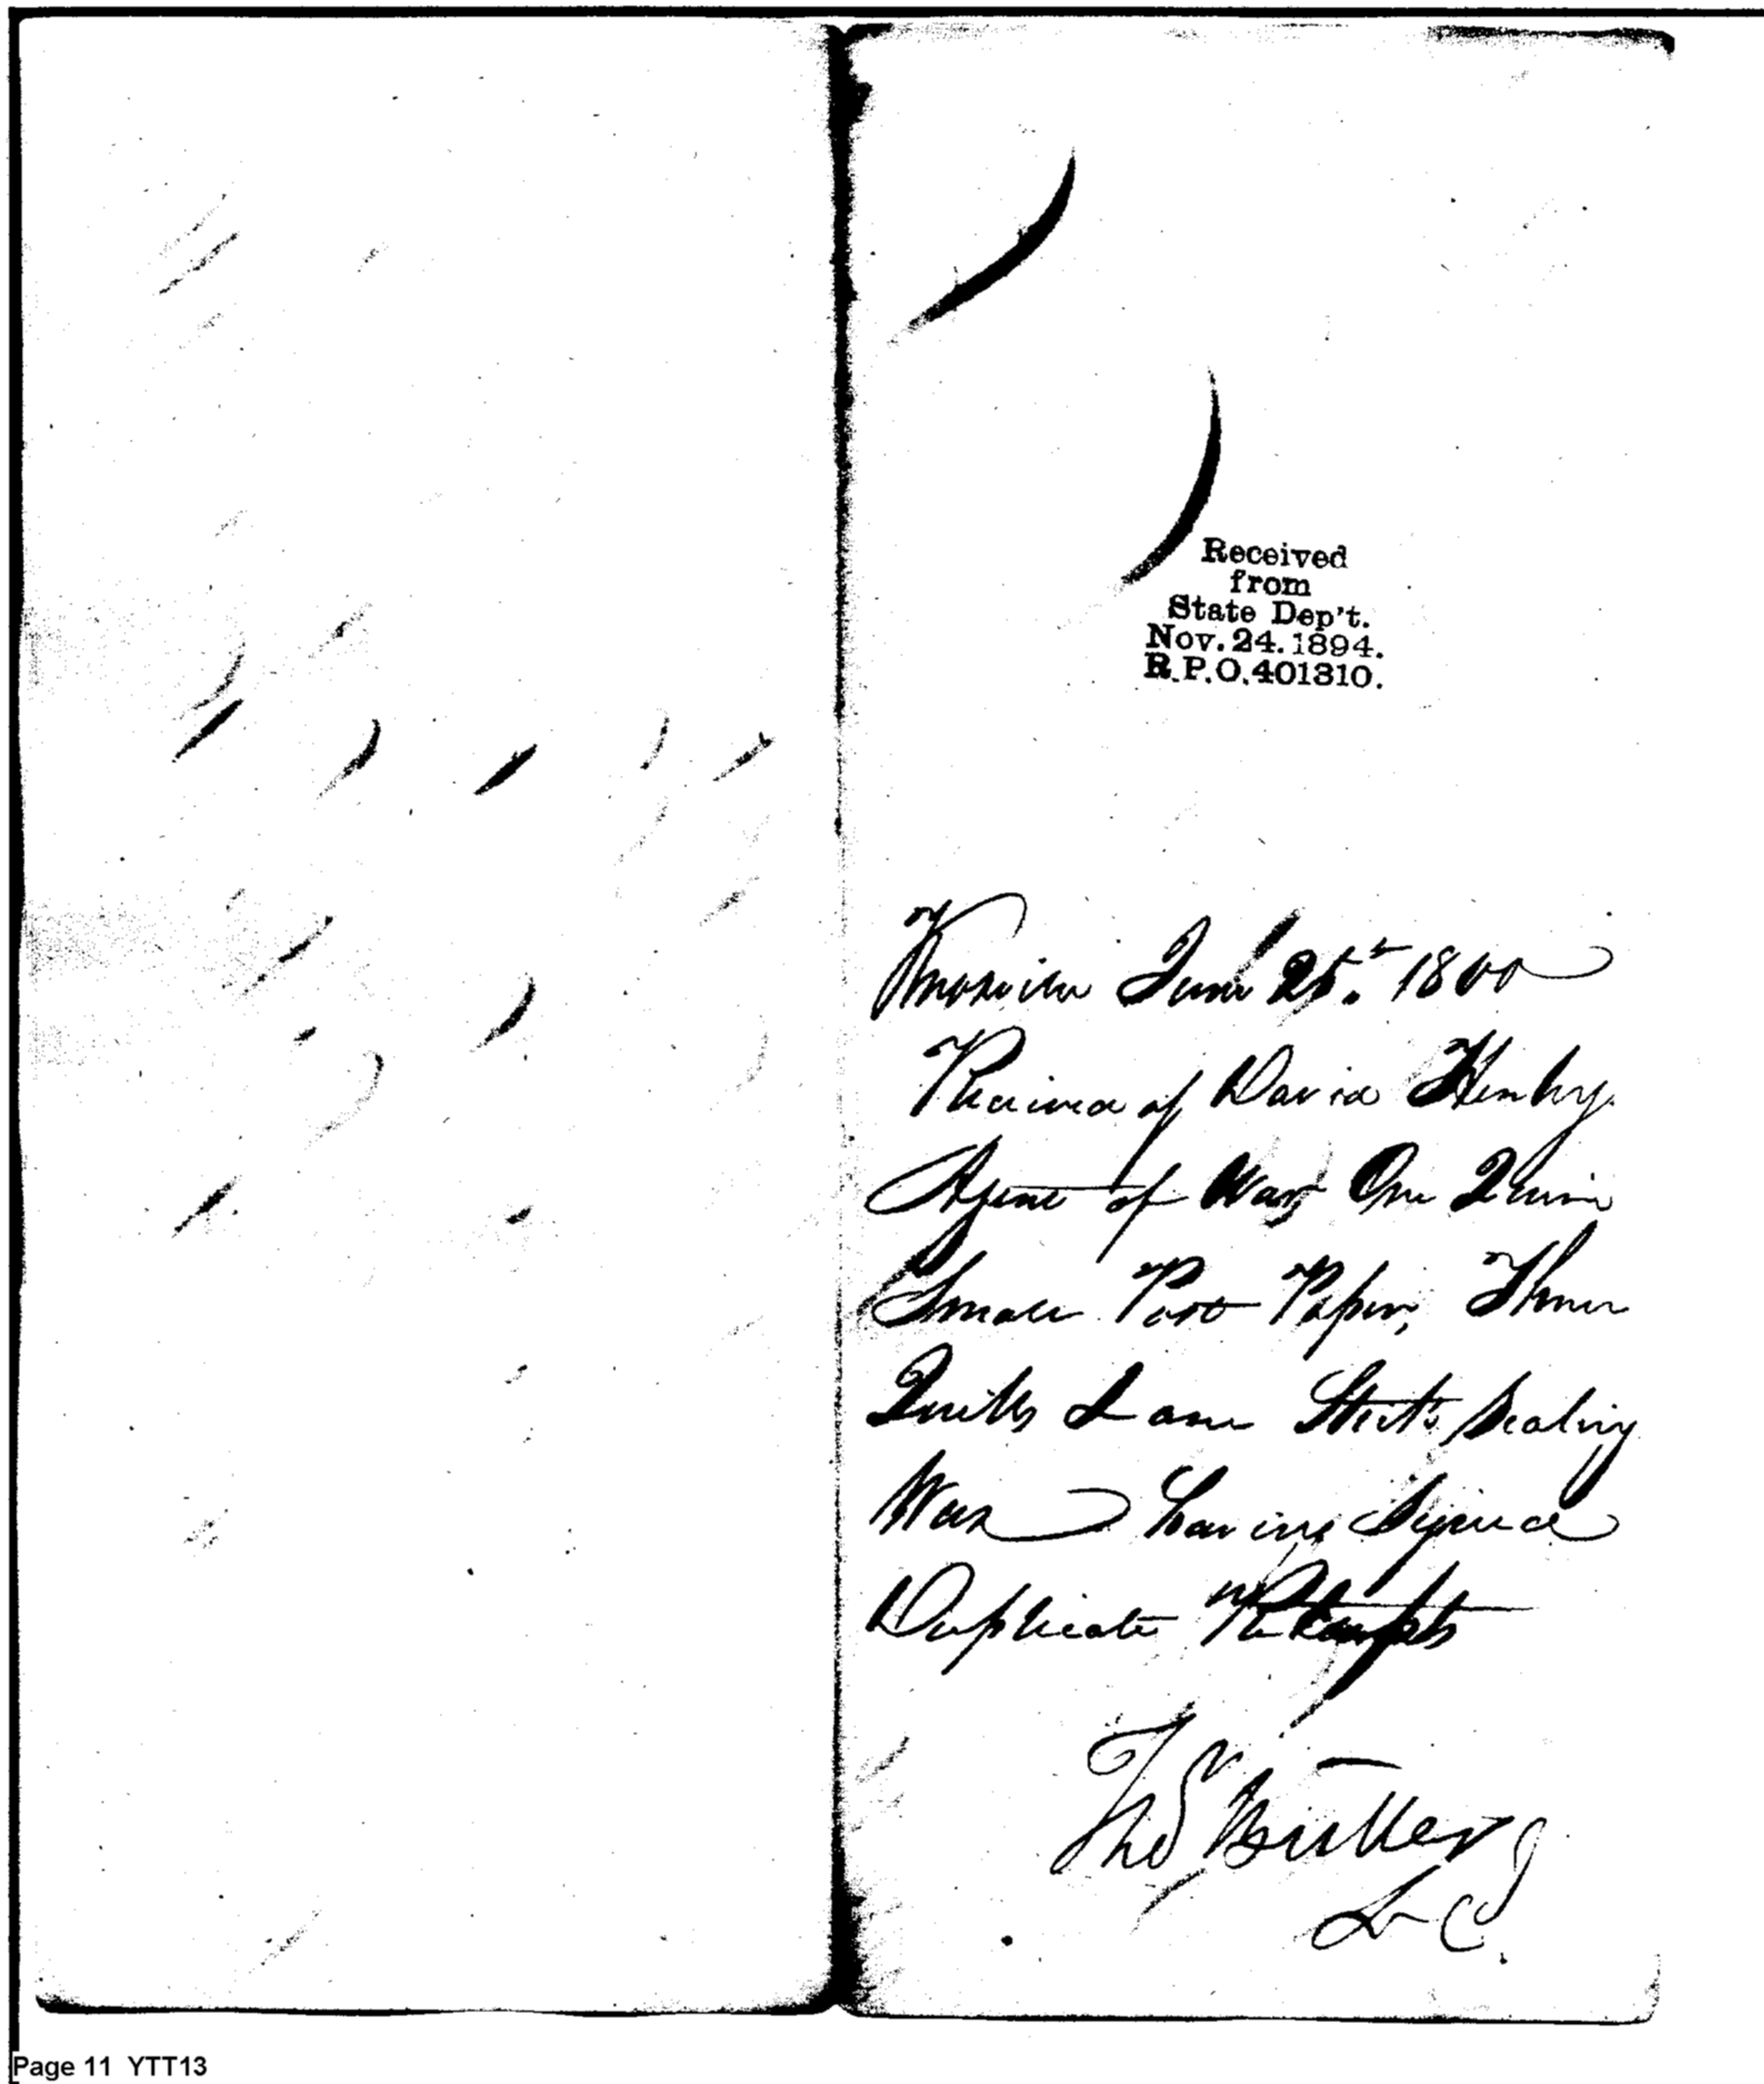 Received
from
State Dep't.
Nov. 24. 1894.
R.P.O. 401310.
Knoxville June 25.th 1800
Received of David Henley
Agent of War, One Quire
Small Post Paper, Three
Quills & one Stick Sealing
Wax having Signed
Duplicate Receipts
Thos Butler
L C
Page 11 YTT13